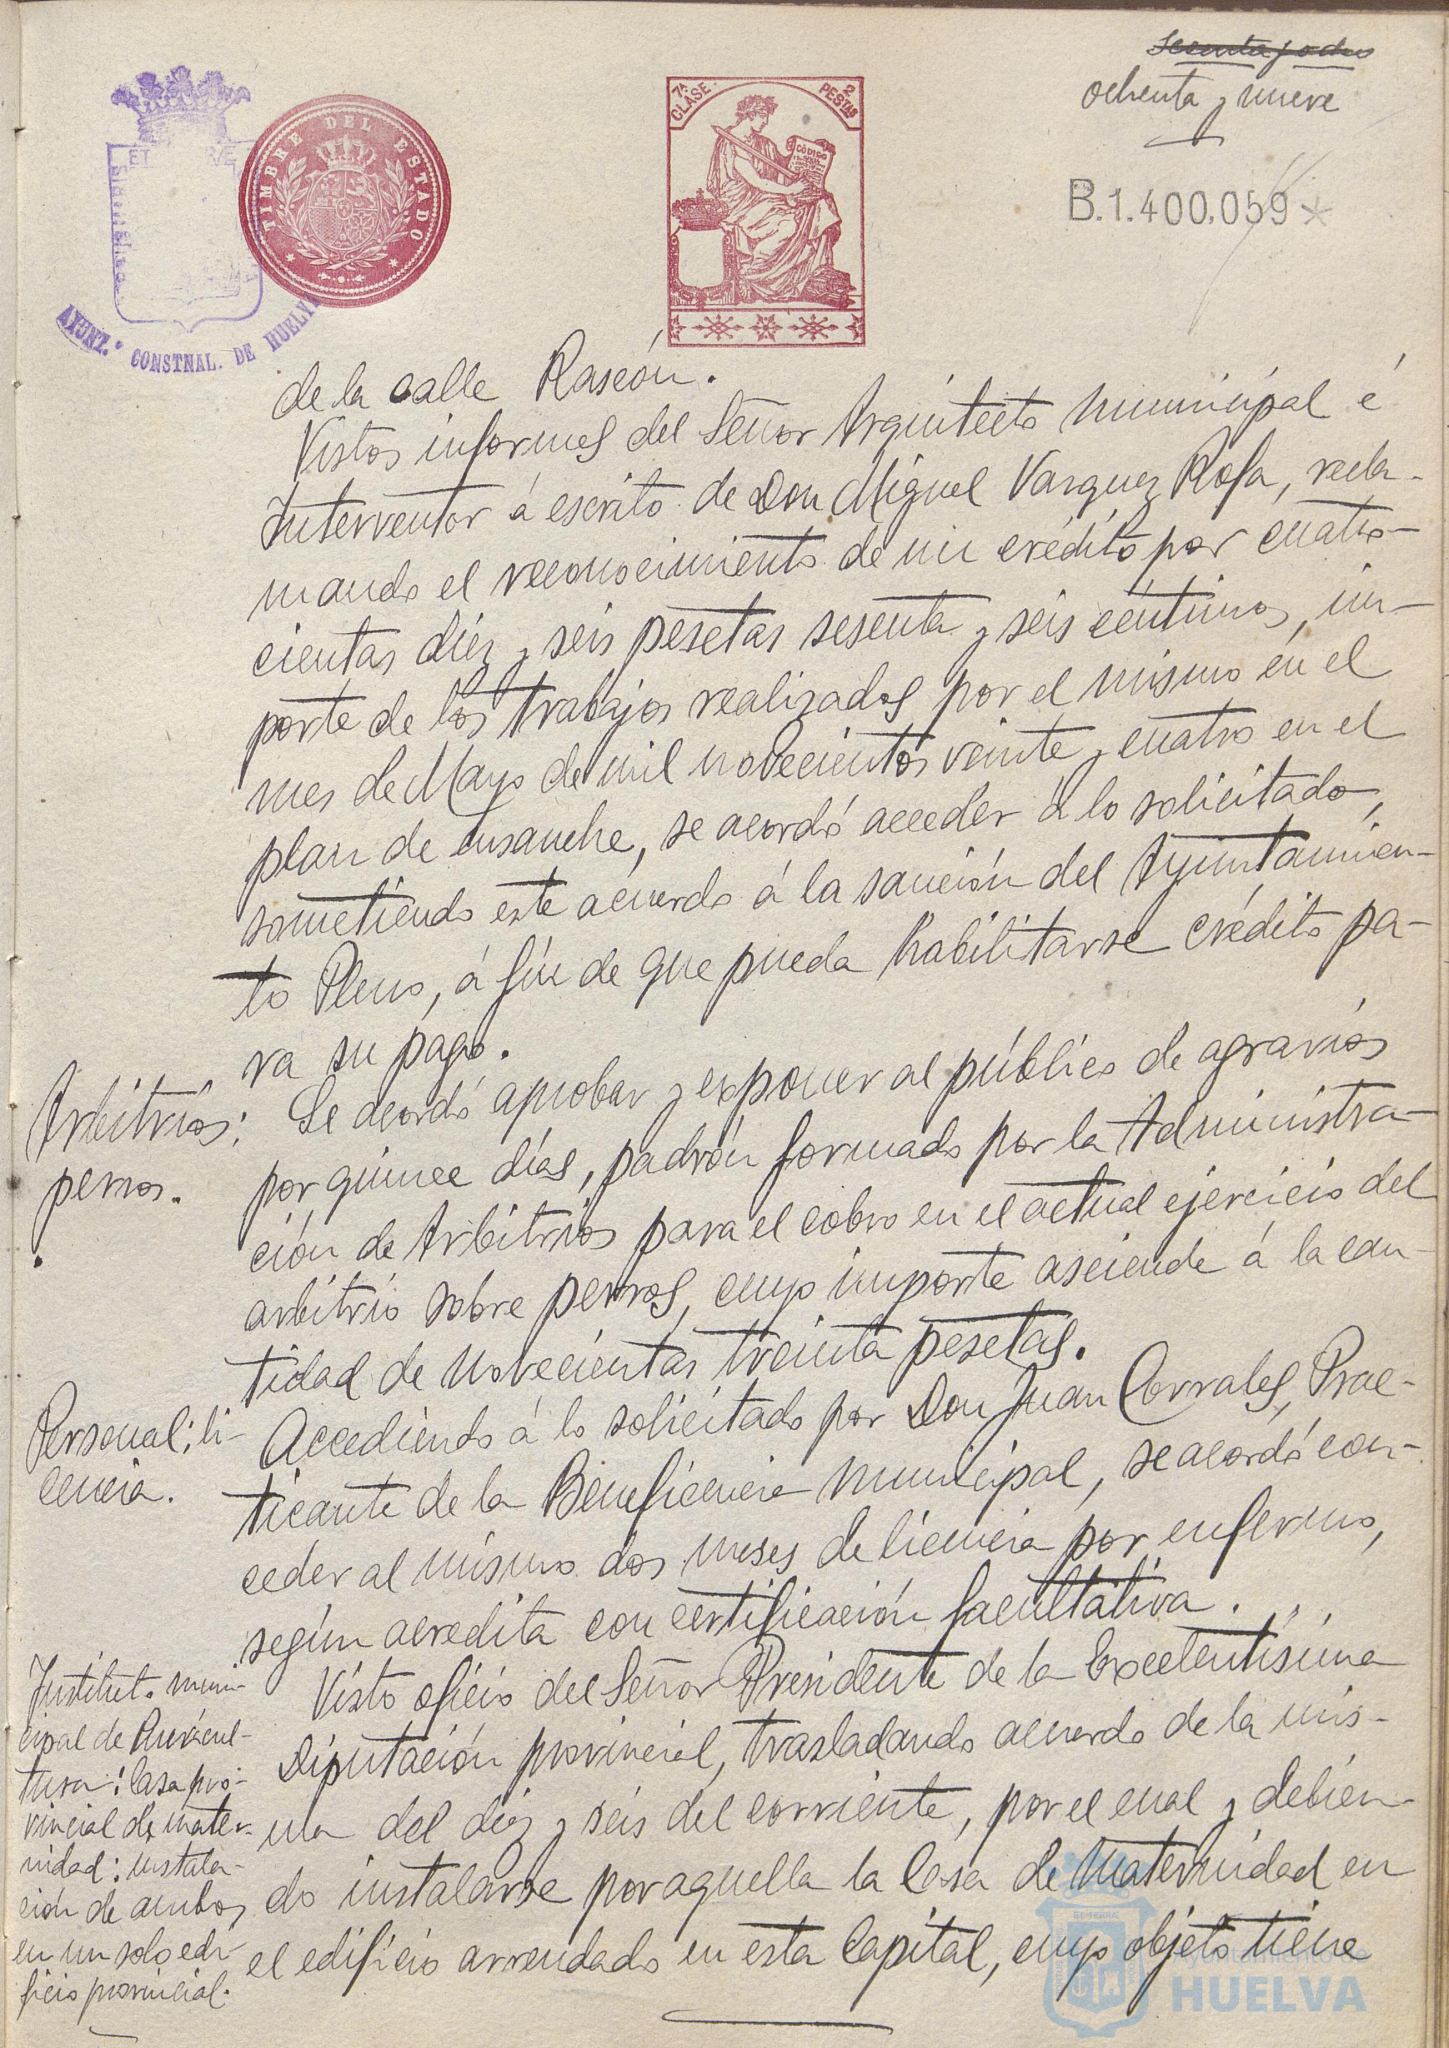 ochenta y nueve
B.1.400,059*
7ª CLASE. 2 PESTAS
CÓDIGO
TIMBRE DEL ESTADO
AYUNT. CONSTNAL. DE HUELVA
de la calle Rascón.
Vistos informes del Señor Arquitecto municipal é
Interventor á escrito de Don Miguel Vazquez Rofa, recla-
mando el reconocimiento de un crédito por cuatro-
cientas diez y seis pesetas sesenta y seis céntimos, im-
porte de los trabajos realizados por el mismo en el
mes de Mayo de mil novecientos veinte y cuatro en el
plan de Ensanche, se acordó acceder á lo solicitado,
sometiendo este acuerdo á la sanción del Ayuntamien-
to Pleno, á fin de que pueda habilitarse crédito pa-
ra su pago.
Arbitrios:
perros.
Se acordó aprobar y exponer al público de agravios
por quince días, padrón formado por la Administra-
ción de Arbitrios para el cobro en el actual ejercicio del
arbitrio sobre perros, cuyo importe asciende á la can-
tidad de novecientas treinta pesetas.
Personal: li-
cencia.
Accediendo á lo solicitado por Don Juan Corrales, Prac-
ticante de la Beneficencia municipal, se acordó con-
ceder al mismo dos meses de licencia por enfermo,
según acredita con certificación facultativa.
Instituto muni-
cipal de Puericul-
tura: Casa pro-
vincial de mater-
nidad: instala-
ción de ambos
en un solo edi-
ficio provincial.
Visto oficio del Señor Presidente de la Excelentísima
Diputación provincial, trasladando acuerdo de la mis-
ma del diez y seis del corriente, por el cual y debien-
do instalarse por aquella la Casa de Maternidad en
el edificio arrendado en esta Capital, cuyo objeto tiene
Ayuntamiento de
HUELVA